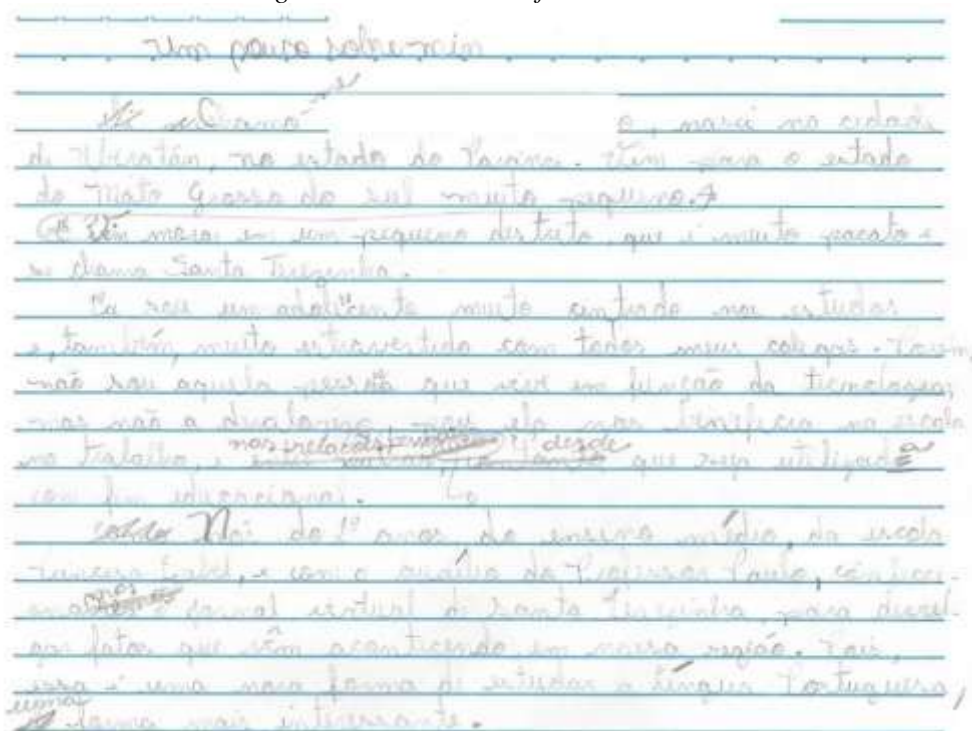 Um pouco sobre min
Chamo-me o, nasci na cidade
de Ubiratãn, no estado do Paraná. Vim para o estado
do Mato Grosso do sul muito pequeno.
moro em um pequeno destrito, que é muito pacato e
se chama Santa Terezinha.
Eu sou um adolicente muito sentrado nos estudos
e, também, muito estravertido com todos meus colegas. Porém,
não sou aquela pessoa que vive em função da tecnologia,
mas não a ela nos benificia na escola
no trabalho, e nas relações desde que seja utilizada
com fim educacional.
Nós do 1º anos, do ensino médio, da escola
e com o auxílio da Professora Paula,
jornal virtual de Santa Terezinha, para divul-
gar fatos que vêm acontecendo em nossa região. Pois,
essa é uma nova forma de estudar a língua Portuguesa,
uma forma mais interessante.